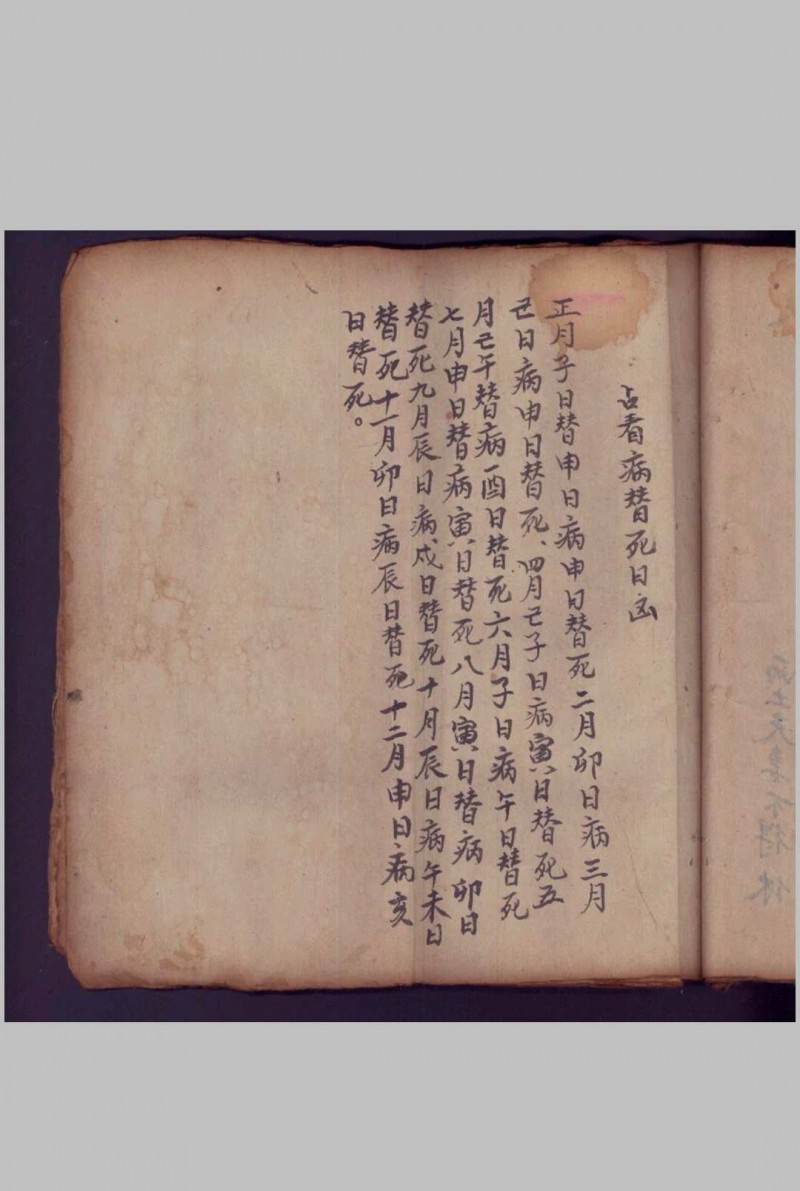 占看病替死日凶
正月子日替申日病申日替死二月卯日病三月
己日病申日替死、四月己子日病寅日替死五
月己午替病酉日替死六月子日病午日替死
七月申日替病寅日替死八月寅日替病卯日
替死九月辰日病戍日替死十月辰日病午未日
替死十一月卯日病辰日替死十二月申日病亥
日替死。